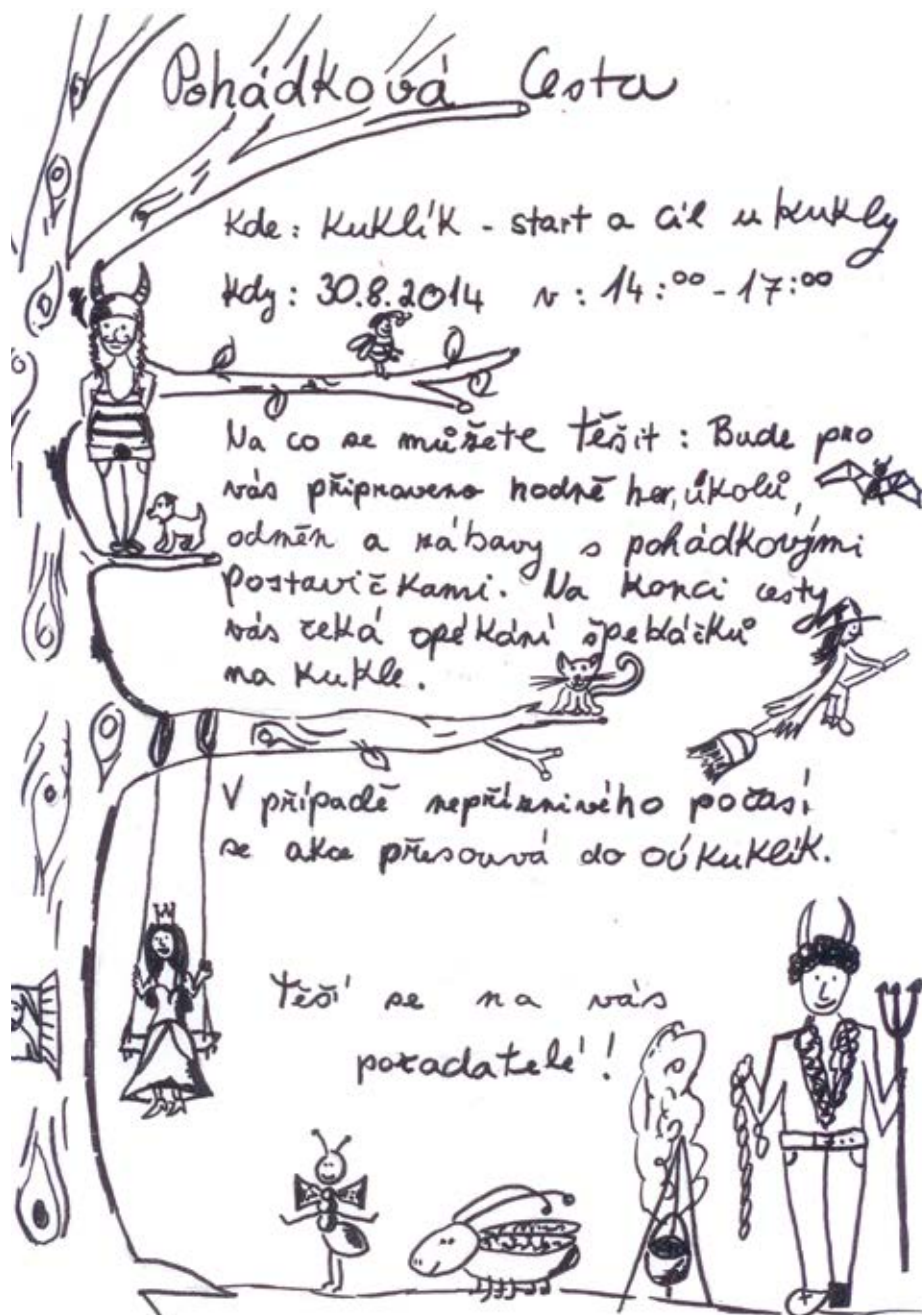 Pohádková Cesta
Kde: Kuklík - start a cíl u kukly
Kdy: 30.8.2014 v: 14:00 - 17:00
Na co se můžete těšit: Bude pro
vás připraveno hodně her, úkolů,
odměn a zábavy s pohádkovými
postavičkami. Na konci cesty
vás čeká opékání špekáčků
na Kukle.
V případě nepříznivého počasí
se akce přesouvá do OÚ Kuklík.
Těší se na vás
pořadatelé!